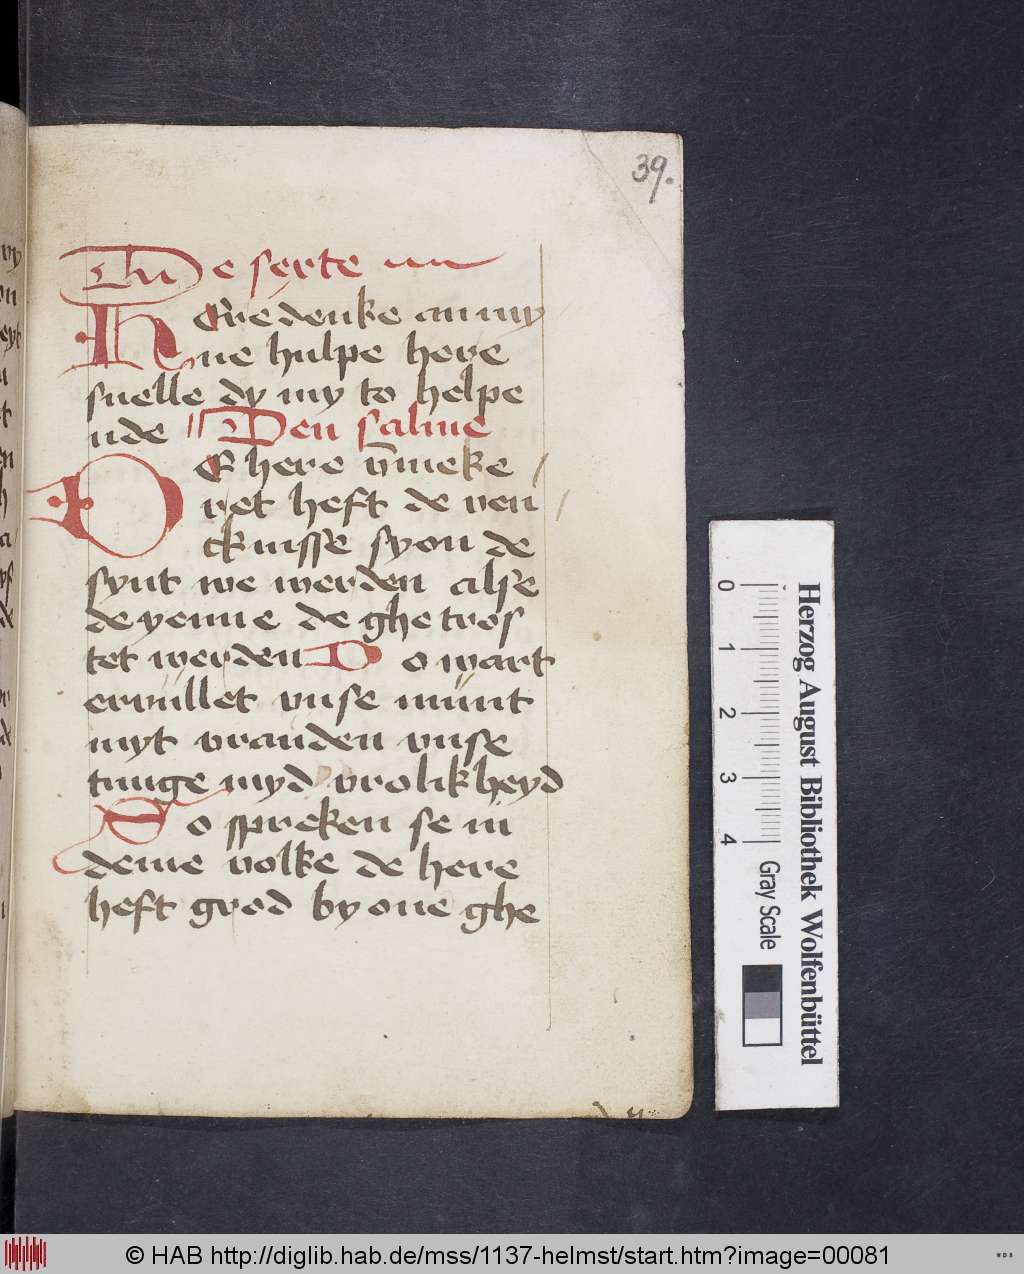 39.
Tu de serte
HEre denke an my
ne hulpe here
snelle dy my to helpe
nde Den salme
DE here vmmeke
ret heft de ven
cknisse syon de
synt we werden alse
de yenne de ghetros
tet werden Do wart
ervullet vnse munt
myt vrauden vnse
tunge myd vrolikheyd
So spreken se in
deme volke de here
heft grod by one ghe
Herzog August Bibliothek Wolfenbüttel
0 1 2 3 4
Gray Scale
© HAB http://diglib.hab.de/mss/1137-helmst/start.htm?image=00081